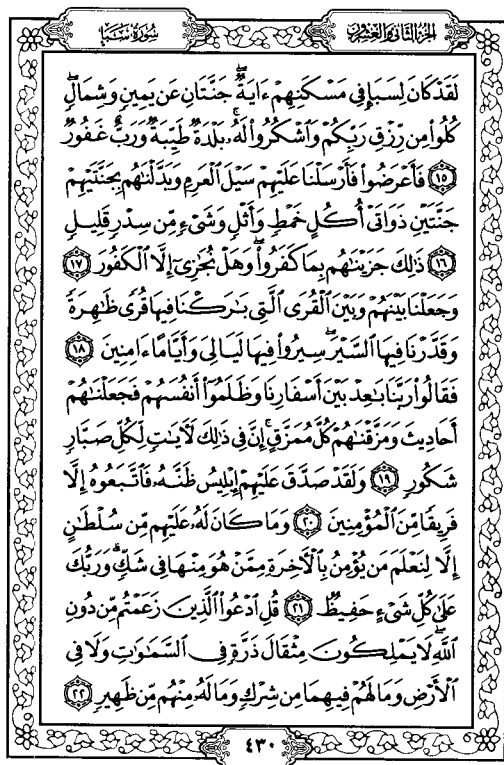 الجزء الثاني والعشرون
سورة سبإ
لَقَدْ كَانَ لِسَبَإٍ فِي مَسْكَنِهِمْ ءَايَةٌۖ جَنَّتَانِ عَن يَمِينٍ وَشِمَالٍۖ
كُلُوا۟ مِن رِّزْقِ رَبِّكُمْ وَٱشْكُرُوا۟ لَهُۥۚ بَلْدَةٌ طَيِّبَةٌ وَرَبٌّ غَفُورٌ
﴿١٥﴾ فَأَعْرَضُوا۟ فَأَرْسَلْنَا عَلَيْهِمْ سَيْلَ ٱلْعَرِمِ وَبَدَّلْنَٰهُم بِجَنَّتَيْهِمْ
جَنَّتَيْنِ ذَوَاتَىْ أُكُلٍ خَمْطٍ وَأَثْلٍ وَشَىْءٍ مِّن سِدْرٍ قَلِيلٍ
﴿١٦﴾ ذَٰلِكَ جَزَيْنَٰهُم بِمَا كَفَرُوا۟ۖ وَهَلْ نُجَٰزِىٓ إِلَّا ٱلْكَفُورَ ﴿١٧﴾
وَجَعَلْنَا بَيْنَهُمْ وَبَيْنَ ٱلْقُرَى ٱلَّتِى بَٰرَكْنَا فِيهَا قُرًى ظَٰهِرَةً
وَقَدَّرْنَا فِيهَا ٱلسَّيْرَۖ سِيرُوا۟ فِيهَا لَيَالِىَ وَأَيَّامًا ءَامِنِينَ ﴿١٨﴾
فَقَالُوا۟ رَبَّنَا بَٰعِدْ بَيْنَ أَسْفَارِنَا وَظَلَمُوٓا۟ أَنفُسَهُمْ فَجَعَلْنَٰهُمْ
أَحَادِيثَ وَمَزَّقْنَٰهُمْ كُلَّ مُمَزَّقٍۚ إِنَّ فِى ذَٰلِكَ لَءَايَٰتٍ لِّكُلِّ صَبَّارٍ
شَكُورٍ ﴿١٩﴾ وَلَقَدْ صَدَّقَ عَلَيْهِمْ إِبْلِيسُ ظَنَّهُۥ فَٱتَّبَعُوهُ إِلَّا
فَرِيقًا مِّنَ ٱلْمُؤْمِنِينَ ﴿٢٠﴾ وَمَا كَانَ لَهُۥ عَلَيْهِم مِّن سُلْطَٰنٍ
إِلَّا لِنَعْلَمَ مَن يُؤْمِنُ بِٱلْءَاخِرَةِ مِمَّنْ هُوَ مِنْهَا فِى شَكٍّۗ وَرَبُّكَ
عَلَىٰ كُلِّ شَىْءٍ حَفِيظٌ ﴿٢١﴾ قُلِ ٱدْعُوا۟ ٱلَّذِينَ زَعَمْتُم مِّن دُونِ
ٱللَّهِۖ لَا يَمْلِكُونَ مِثْقَالَ ذَرَّةٍ فِى ٱلسَّمَٰوَٰتِ وَلَا فِى
ٱلْأَرْضِ وَمَا لَهُمْ فِيهِمَا مِن شِرْكٍ وَمَا لَهُۥ مِنْهُم مِّن ظَهِيرٍ ﴿٢٢﴾
٤٣٠